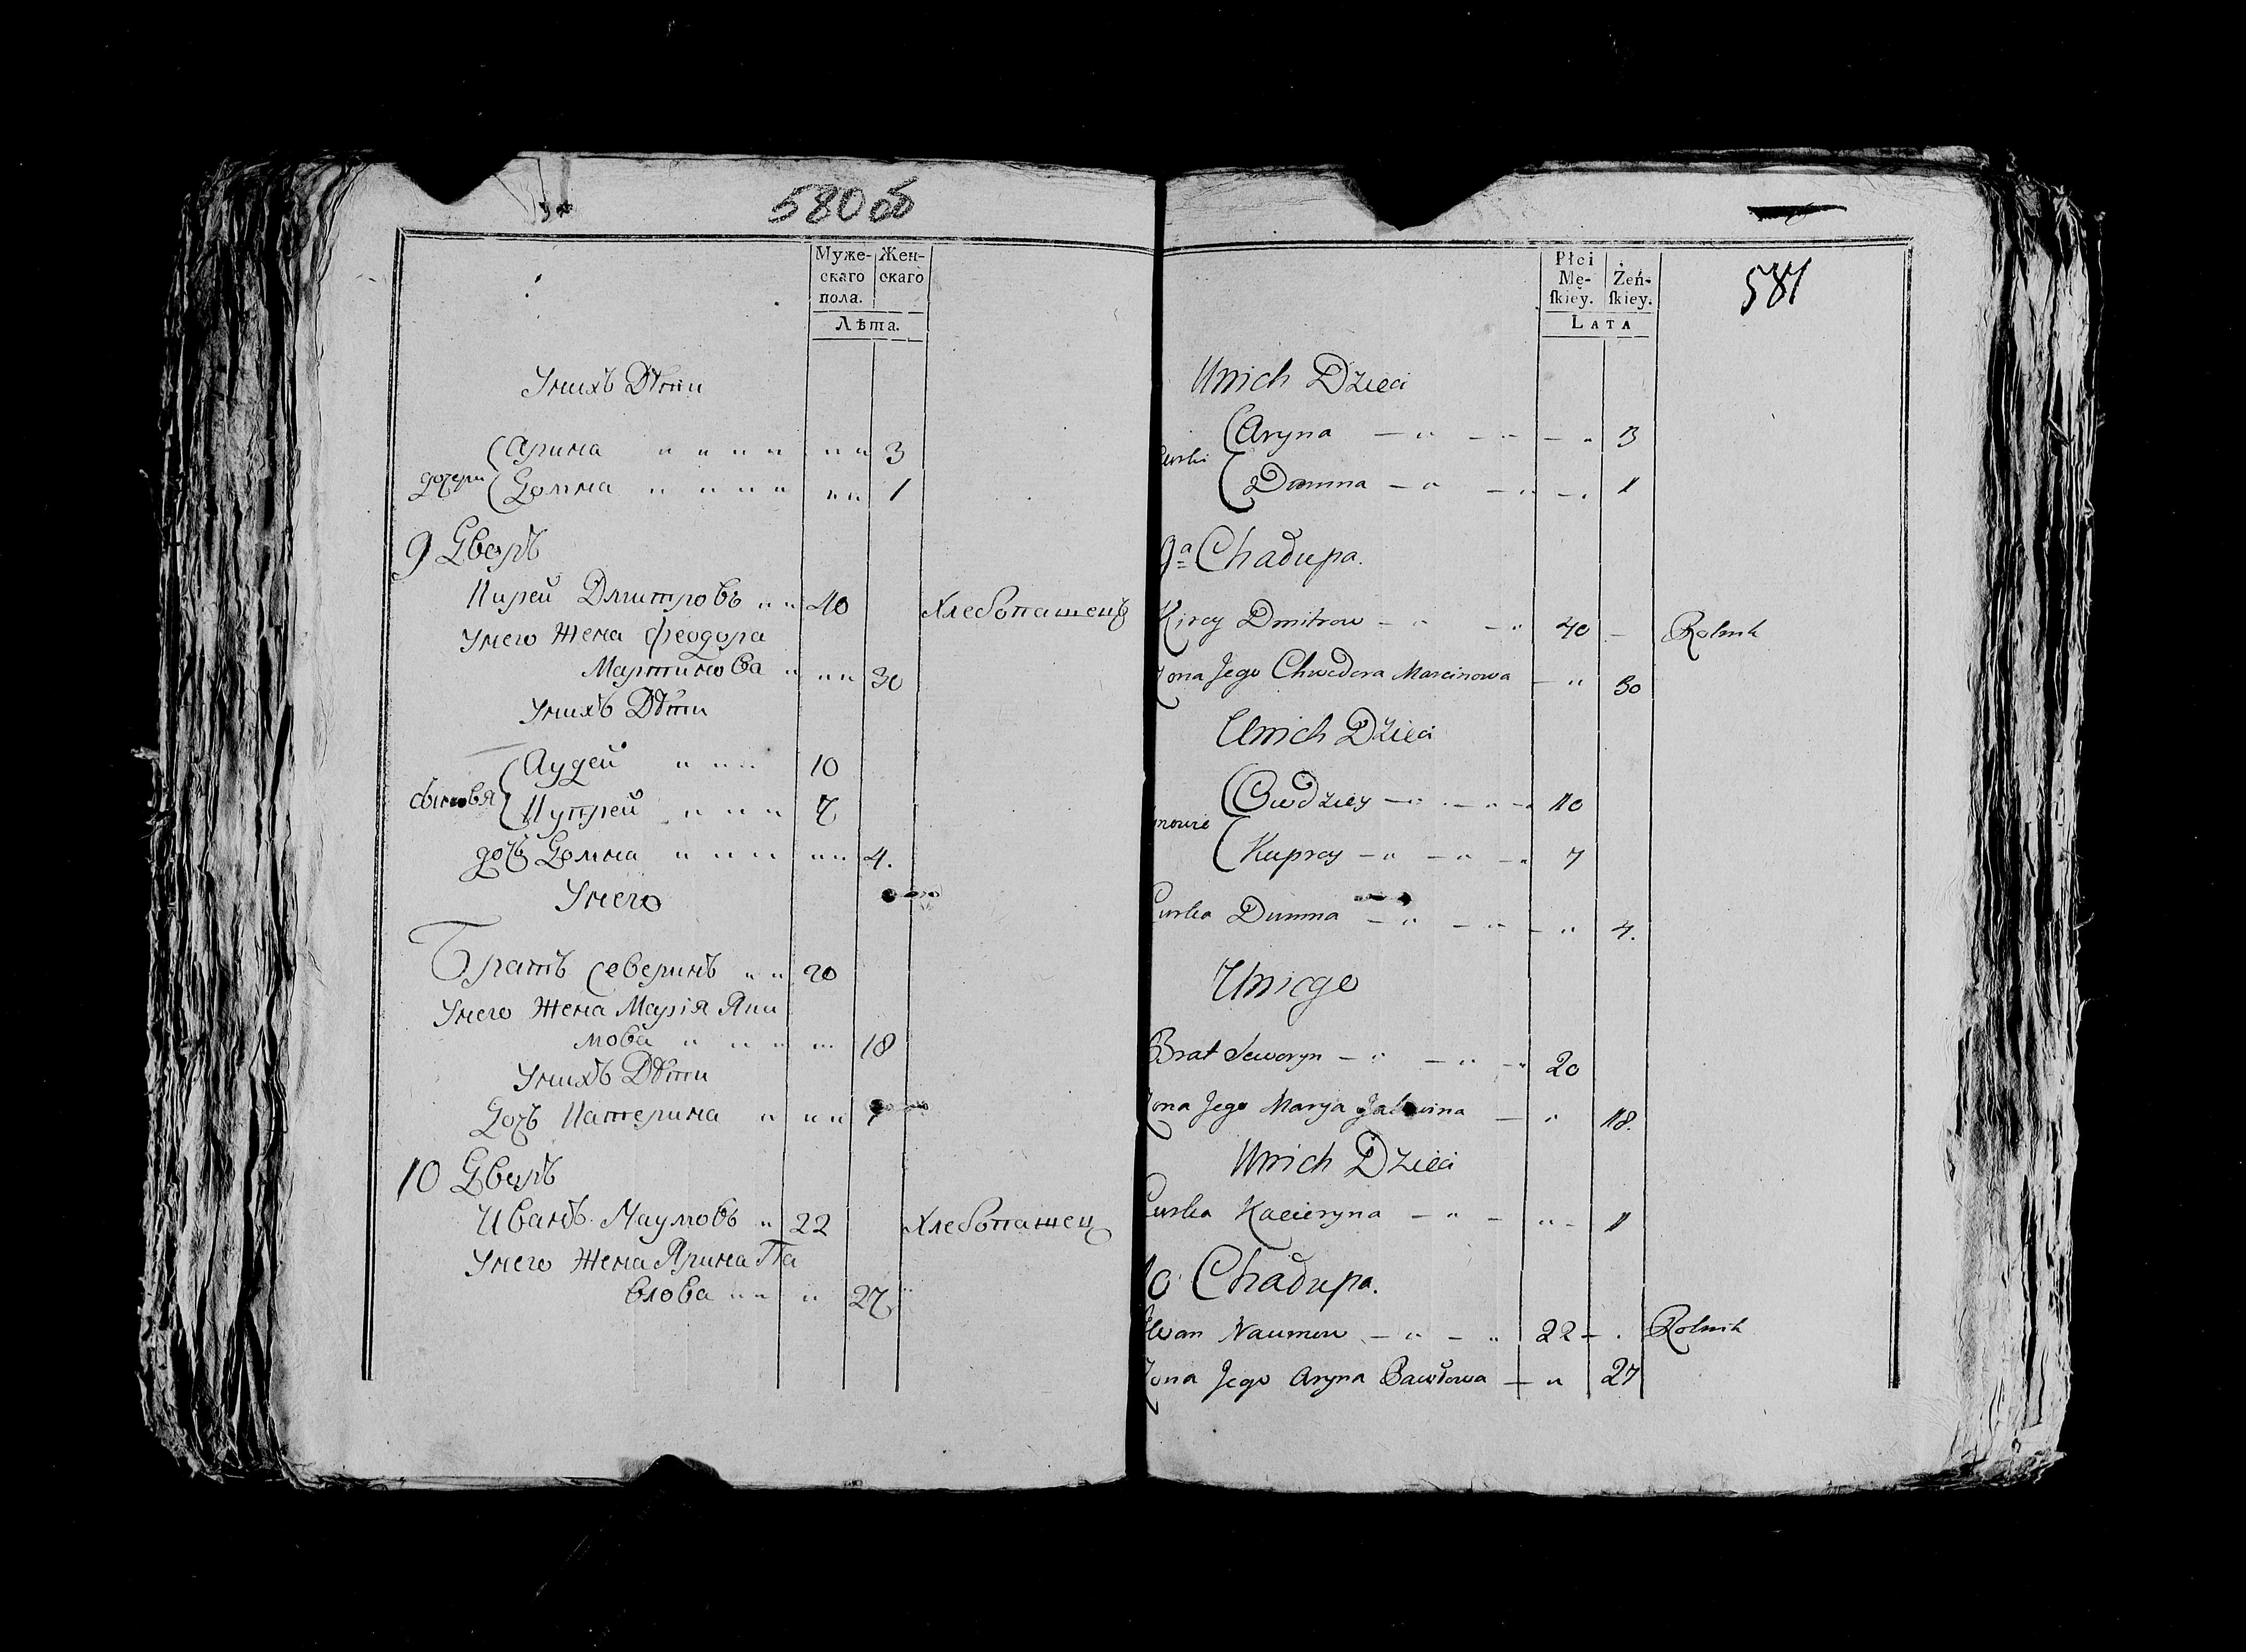 580 об
Муже- Жен-
скаго скаго
пола.
Лѣта.
Унихъ Дѣти
дочери
Арина " " " " " " 3
Домна " " " " " " 1
9 Дворъ
Кирей Дмитровъ " " 40 Хлебопашецъ
Унего Жена Феодора
Мартинова " " " 30
Унихъ Дѣти
сыновья
Аудей " " " 10
Купрей " " " " 7
дочь Домна " " " " " " 4.
Унего
Братъ Северинъ " " 20
Унего Жена Марія Яки
мова " " " " 18
Унихъ Дѣти
Дочь Катерина " " " 1
10 Дворъ
Иванъ Наумовъ " 22 Хлебопашец
Унего Жена Ярина Па
влова " " " 27
581
Płci
Mę- Żeń-
ſkiey. ſkiey.
LATA
Unich Dzieci
Curki
Aryna — " — " — " 3
Dumna — " — " — " 1
9a Chadupa.
Kirey Dmitrow — " — " 40 — Rolnik
Zona Jego Chwedora Marcinowa — " 30
Unich Dzieci
Synowie
Owdziey — " — " — 10
Kuprey — " — " — " 7
Curka Dumna — " — " — " 4.
Uniego
Brat Seweryn — " — " — " 20
Zona Jego Marya — " 18.
Unich Dzieci
Curka Kacieryna — " — " — 1
10 Chadupa.
Iwan Naumow — " — " 22 — . Rolnik
Zona Jego Aryna Pawłowa — " 27